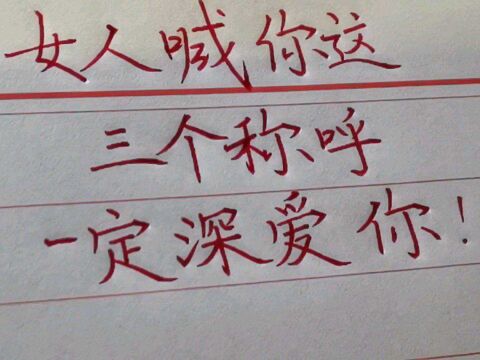 女人喊你这
三个称呼
一定深爱你！